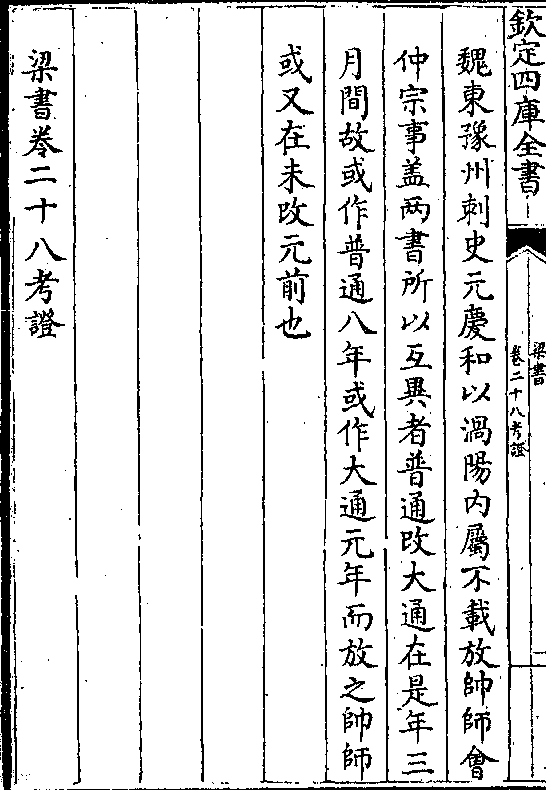 欽定四庫全書
梁書
卷二十八考證
魏東豫州刺史元慶和以渦陽内屬不載放帥師㑹
仲宗事盖两書所以互異者普通改大通在是年三
月間故或作普通八年或作大通元年而放之帥師
或又在未改元前也
梁書卷二十八考證